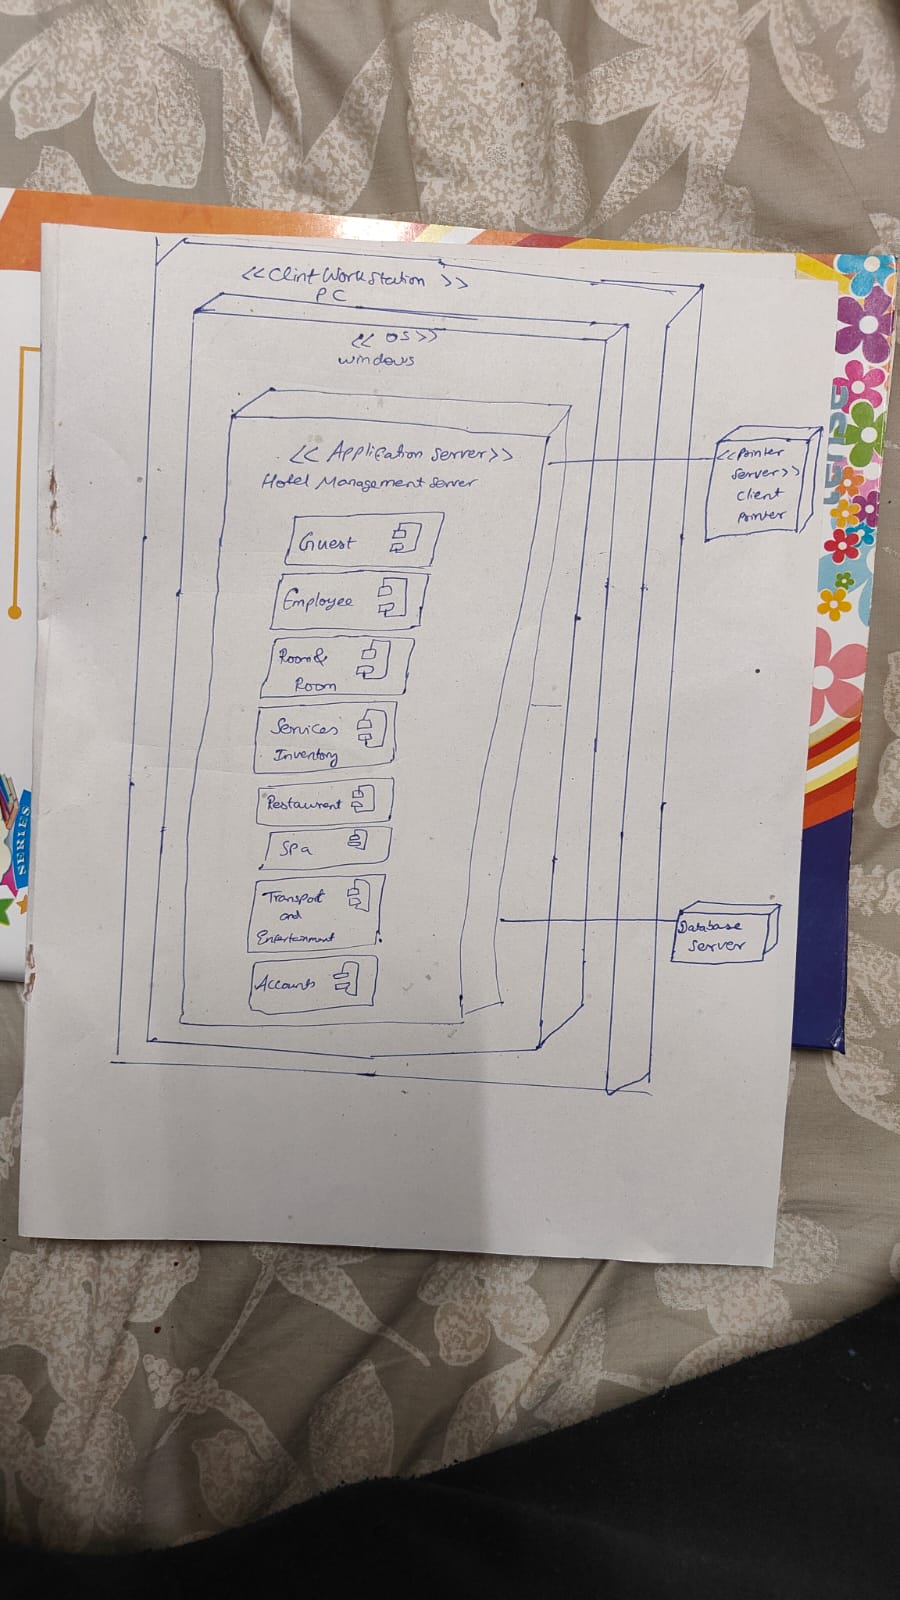 <<Clint Workstation >>
PC
<< OS>>
windows
<< Application server>>
Hotel Management server
Guest
Employee
Room&
Room
Services
Inventory
Restaurent
Spa
Transport
and
Entertainment
Accounts
<<Pointer
Server>>
Client
Pointer
Database
Server
SERIES